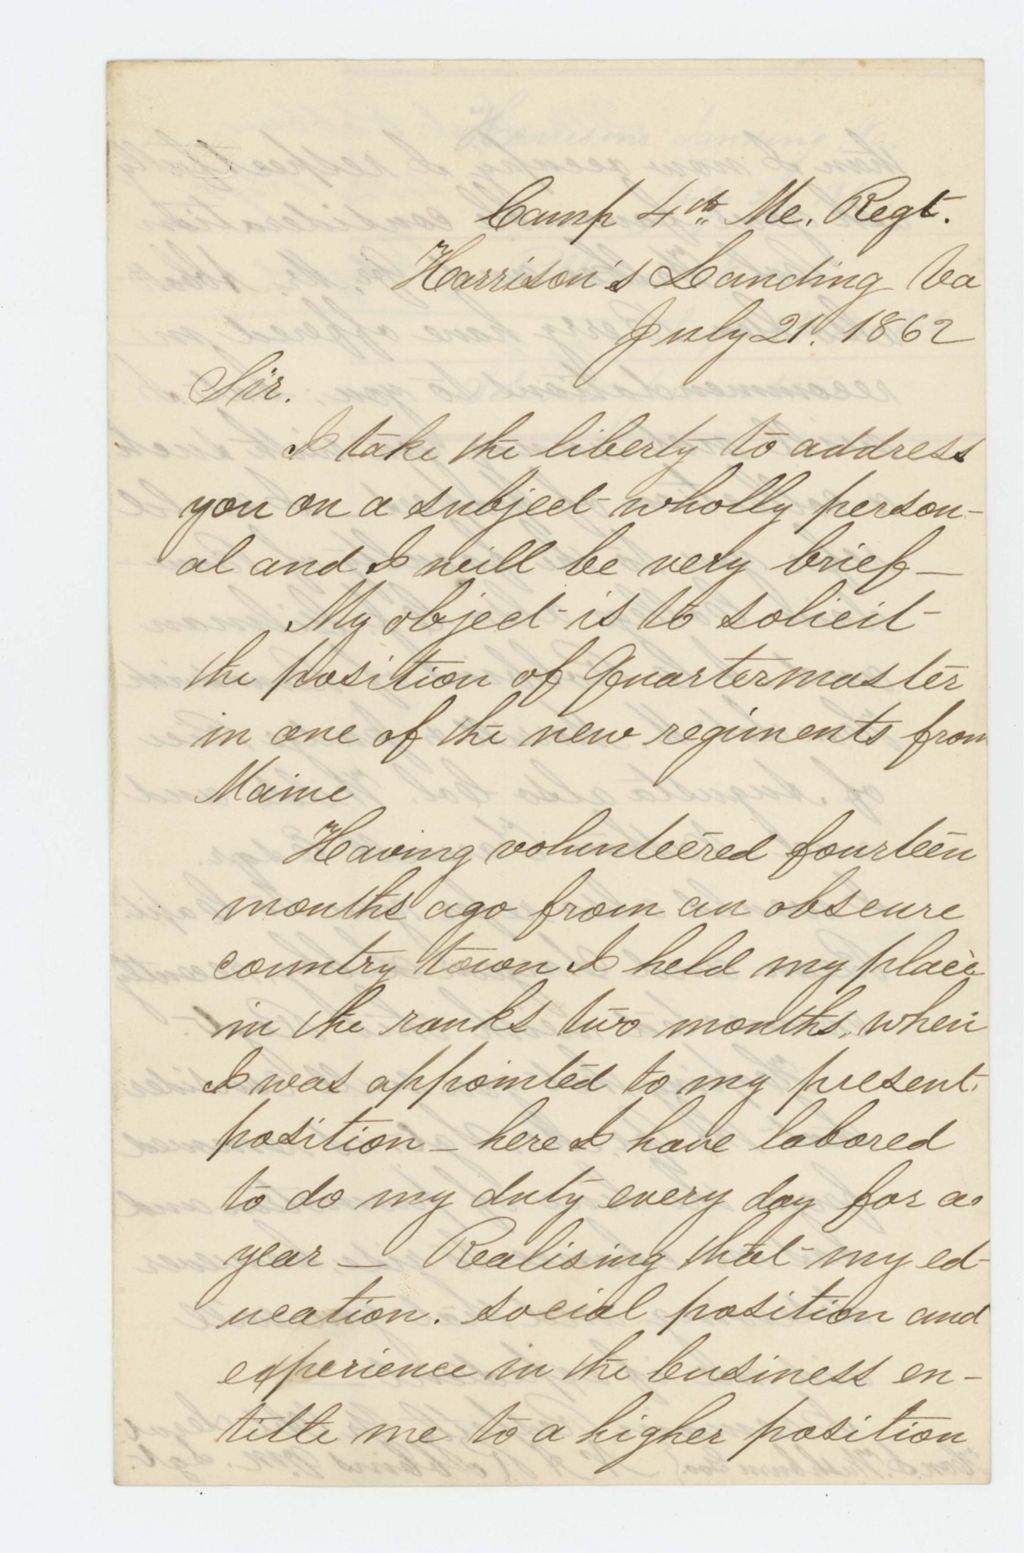 Camp 4th Me. Regt.
Harrison's Landing Va
July 21. 1862
Sir.
I take the liberty to address
you on a subject wholly person-
al and I will be very brief—
My object is to solicit
the position of Quartermaster
in one of the new regiments from
Maine
Having volunteered fourteen
months ago from an obscure
country town I held my place
in the ranks two months, when
I was appointed to my present
position — here I have labored
to do my duty every day for a
year — Realising that my ed-
ucation. social position and
experience in the business en-
title me to a higher position